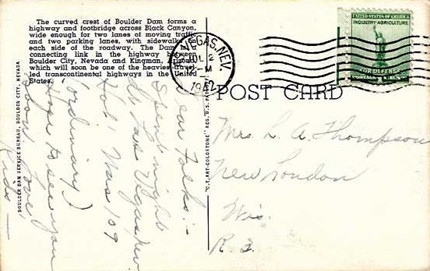 The curved crest of Boulder Dam forms a
highway and footbridge across Black Canyon,
wide enough for two lanes of moving traffic
and two parking lanes, with sidewalks
each side of the roadway. The Dam
connecting link in the highway
Boulder City, Nevada and Kingman, Arizona
which will soon be one of the heaviest
led transcontinental highways in the United
States.
BOULDER DAM SERVICE BUREAU, BOULDER CITY, NEVADA
VEGAS, NEV.
2
M
UNITED STATES OF AMERICA
INDUSTRY AGRICULTURE
FOR DEFENSE
POST CARD
"C.T. ART-COLORTONE" REG. U.S. PAT.
Dear Folks:-
Spent night
at Las Vegas
Hot. Was 109
(ordinary)
Hope to see you
soon. Love
Kids—
Mrs. L. A. Thompson
New London
Wis.
R. 2